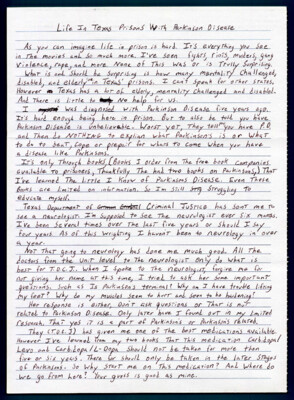 Life In Texas Prisons With Parkinson Disease
As you can imagine life in prison is hard. It's everything you see
in the movies and so much more. I've seen fights, riots, murders, gang
violence, rape, and more. None of this was or is truly surprising.
What is and should be surprising is how many mentally challenged,
disabled, and elderly in Texas' prisons. I can't speak for other states.
However Texas has a lot of elderly, mentally challenged and disabled.
And there is little to no help for us.
I was diagnosed with Parkinson Disease five years ago.
It's hard enough being here in prison. But to also be told you have
Parkinson Disease is unbelievable. Worst yet, they tell you have P.D.
and then do nothing to explain what Parkinson's is or what
to do to beat, cope or prepare for what's to come when you have
a disease like Parkinsons.
It's only through books, (Books I order from the free book companies
available to prisoners, thankfully they had two books on Parkinsons) that
I've learned the little I know of Parkinsons Disease. Even those
books are limited on information. So I'm still struggling to
educate myself.
Texas Department of Criminal Justice has sent me to
see a neurologist. I'm supposed to see the neurologist every six months.
I've been several times over the last five years or should I say
few years. As of this wrighting I haven't been to neurology in over
a year.
Not that going to neurology has done me much good. All the
doctors from the unit level to the neurologist only do what is
best for T.D.C.J. When I gone to the neurologist, forgive me for
not giving her name at this time, I tried to ask her some important
questions, such as Is Parkinson's terminal? Why am I have trouble lifting
my feet? Why do my muscles seem to hurt and seem to be hardening?
Her response is either, Don't ask questions or That is not
related to Parkinson Disease. Only later have I found out in my limited
research that yes it is a part of Parkinsons or Parkinsons related.
They (T.D.C.J) has given me one of the best medications available.
However I've learned from my two books that this medication Carbidopal
Levo and Carbidopa/L-Dopa should not be taken for more than
five or six years. These be should only be taken in the later stages
of Parkinsons. So why start me on this medication? And where do
we go from here? Your guess is good as mine.